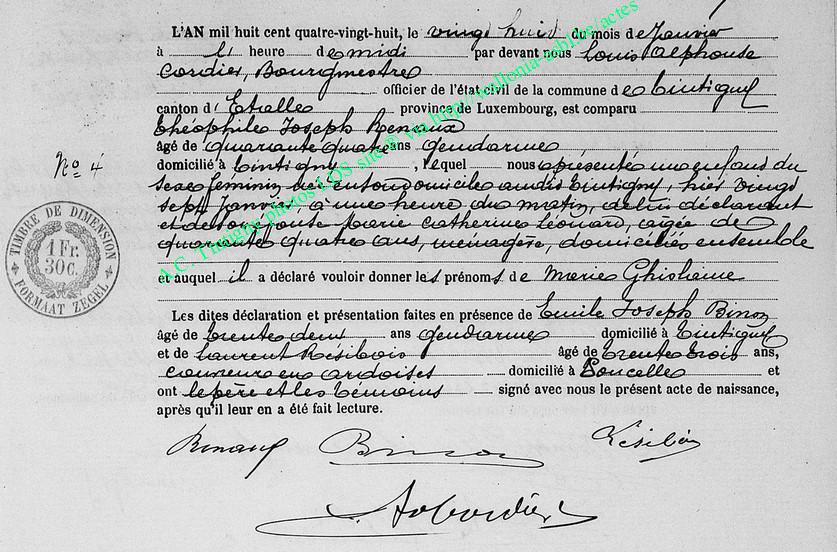 L'AN mil huit cent quatre-vingt-huit, le vingt huit du mois de Janvier
à l' heure de midi par devant nous Louis Alphonse
Cordier, Bourgmestre
officier de l'état civil de la commune de Tintigny
canton d'Etalle province de Luxembourg, est comparu
Théophile Joseph Renaux
âgé de quarante quatre ans gendarme
domicilié à Tintigny, lequel nous a présenté un enfant du
sexe féminin né en son domicile audit Tintigny, hier vingt
sept Janvier, à une heure du matin, de lui déclarant
et de son épouse Marie Catherine Léonard, âgée de
quarante quatre ans, ménagère, domiciliés ensemble
et auquel il a déclaré vouloir donner les prénoms de Marie Ghislaine
Les dites déclaration et présentation faites en présence de Emile Joseph Binon
âgé de trente deux ans gendarme domicilié à Tintigny
et de Laurent Résibois âgé de trente trois ans,
couvreur en ardoises domicilié à Poncelle et
ont le père et les témoins signé avec nous le présent acte de naissance,
après qu'il leur en a été fait lecture.
N° 4
TIMBRE DE DIMENSION
1 Fr.
30 c.
FORMAAT ZEGEL
Renaux Binon Résibois
A.C. Tintigny photos LDS site © via http://wallonia-asbl.be/actes